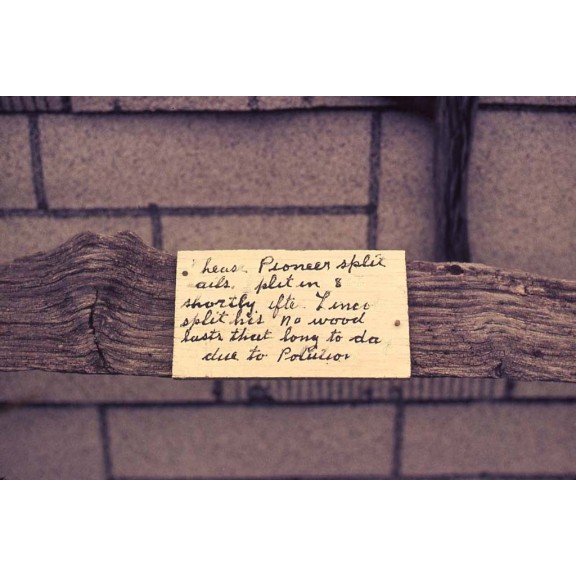 heas. Pioneer split
ails. plit in 8
shortly fte. Linco
split his No wood
lasts that long to da
due to Polution